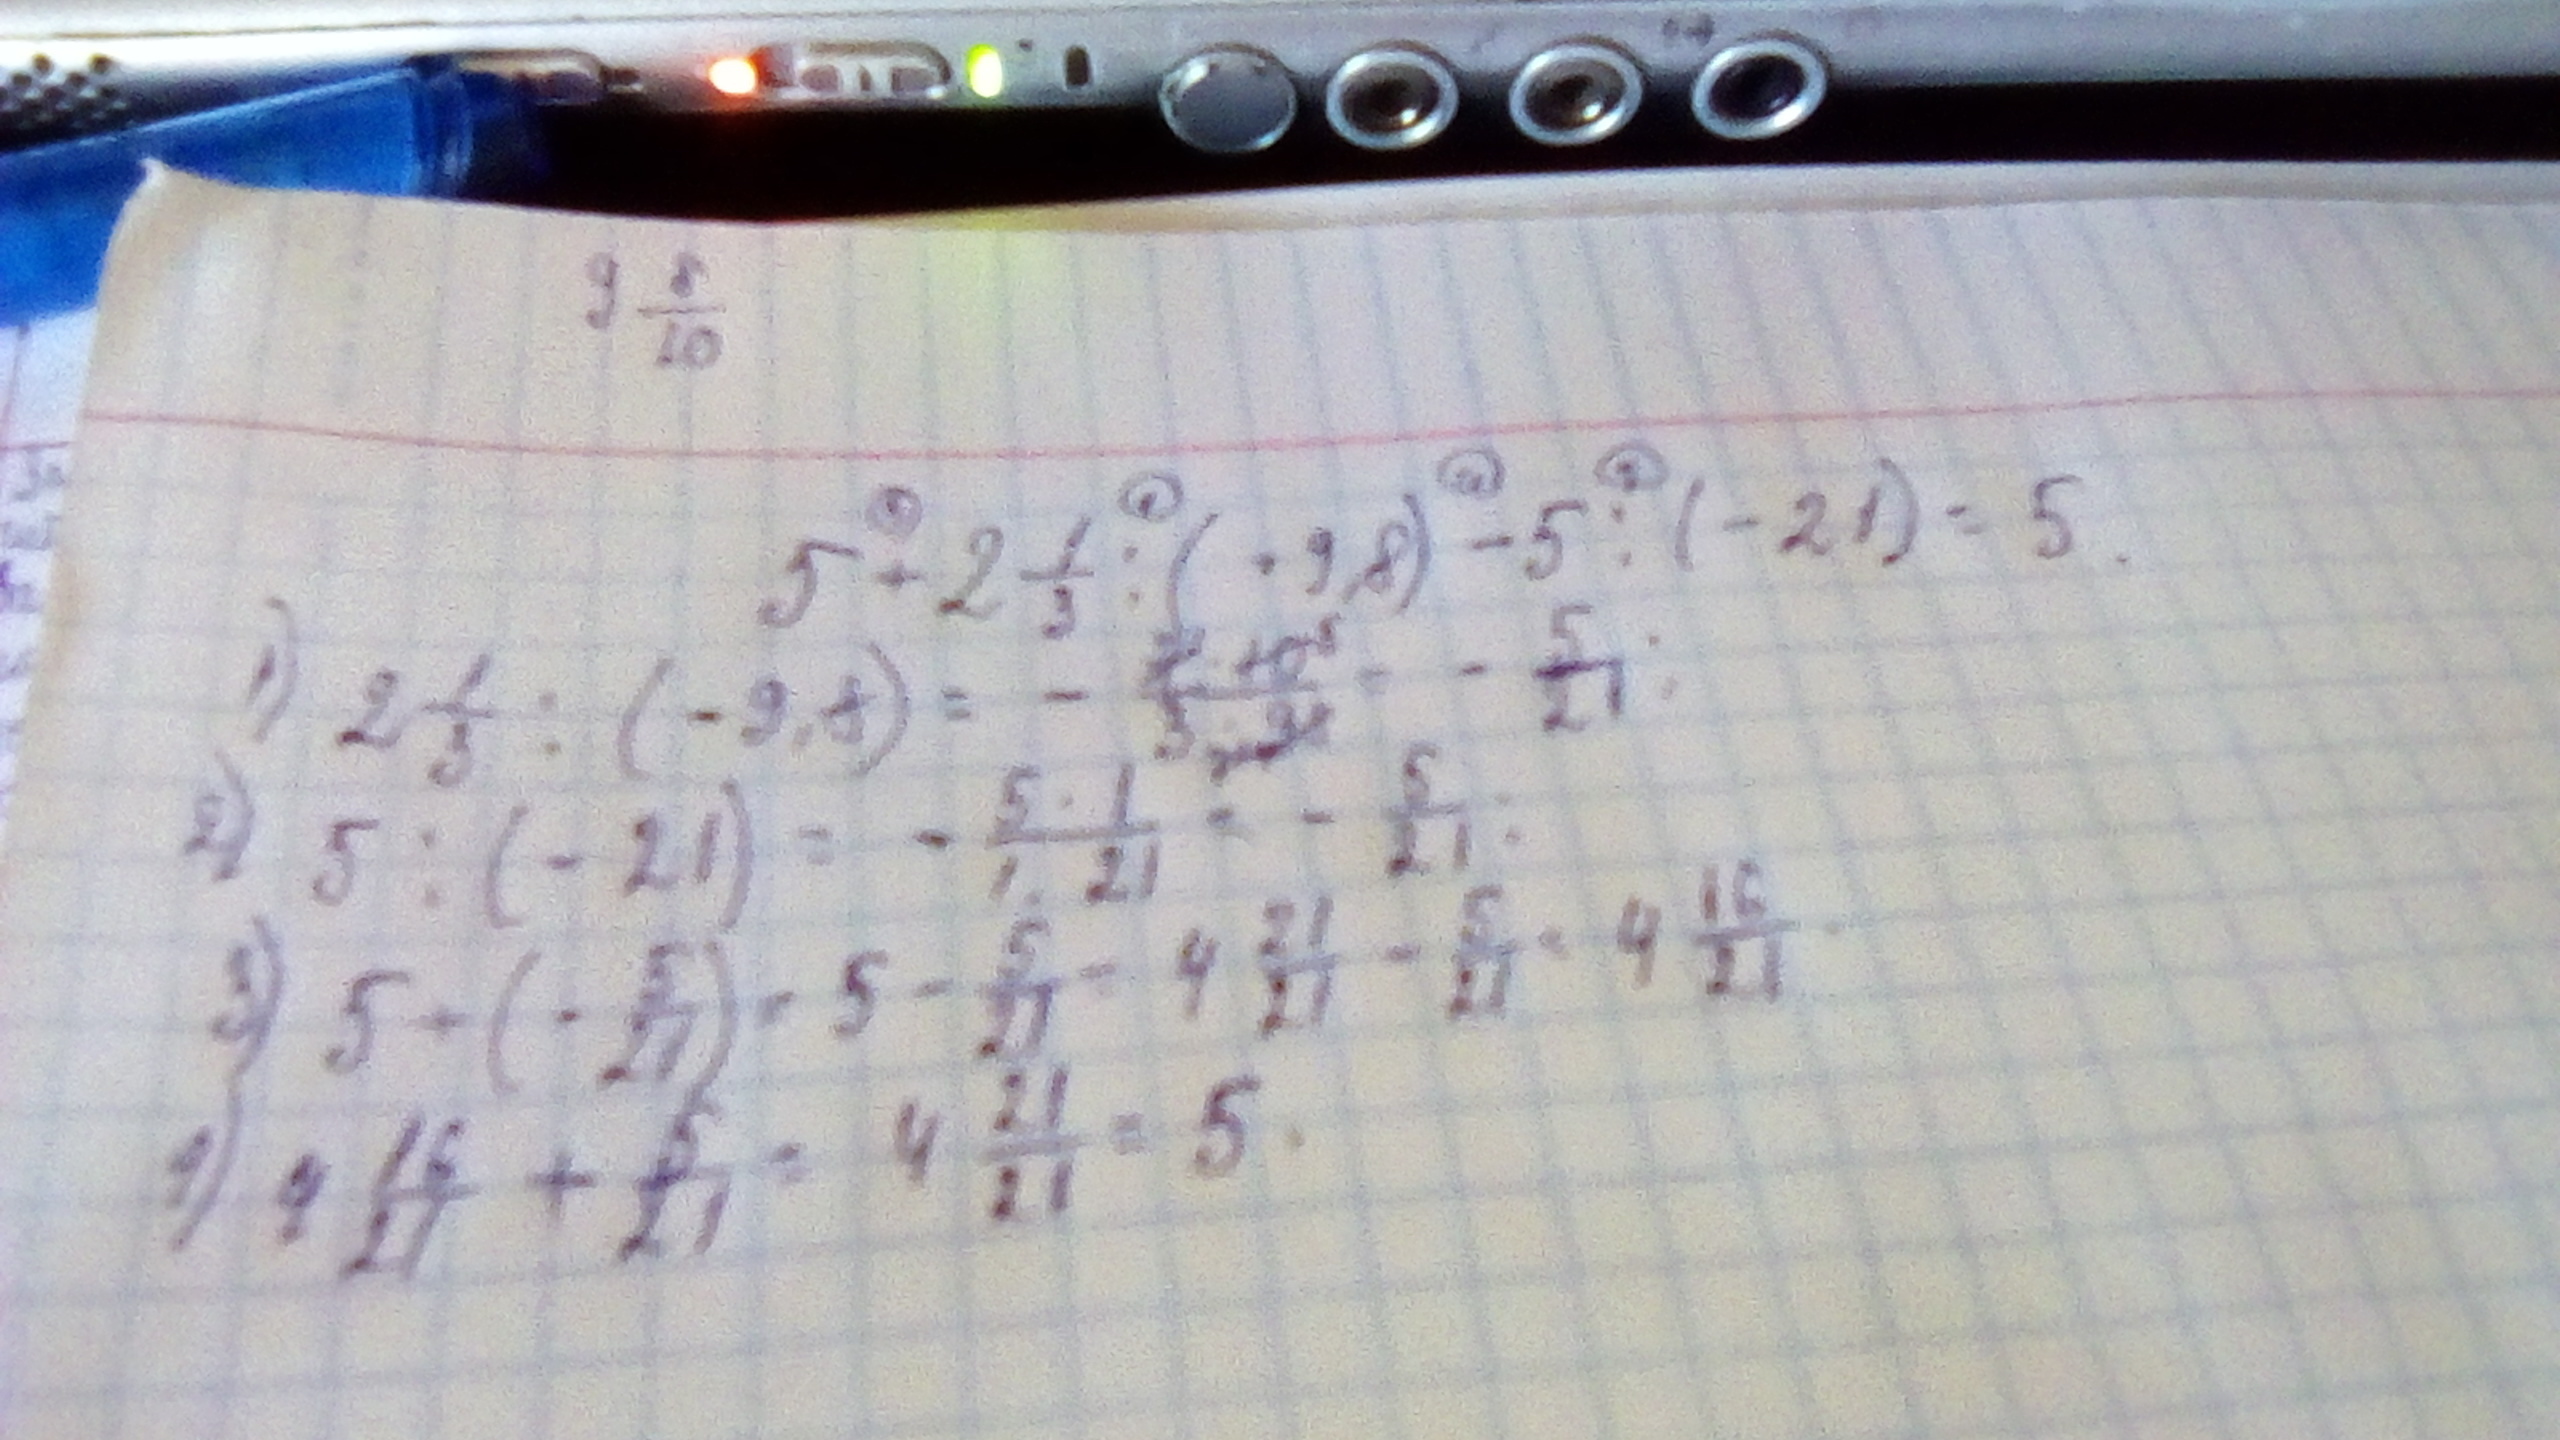 9 8/10
5 + 2 1/3 : (-9,8) - 5 : (-21) = 5.
1) 2 1/3 : (-9,8) = - 7·10⁵/3· = - 5/21.
2) 5 : (-21) = - 5·1/1·21 = - 5/21.
3) 5 + (- 5/21) = 5 - 5/21 = 4 21/21 - 5/21 = 4 16/21.
4) 4 16/21 + 5/21 = 4 21/21 = 5.